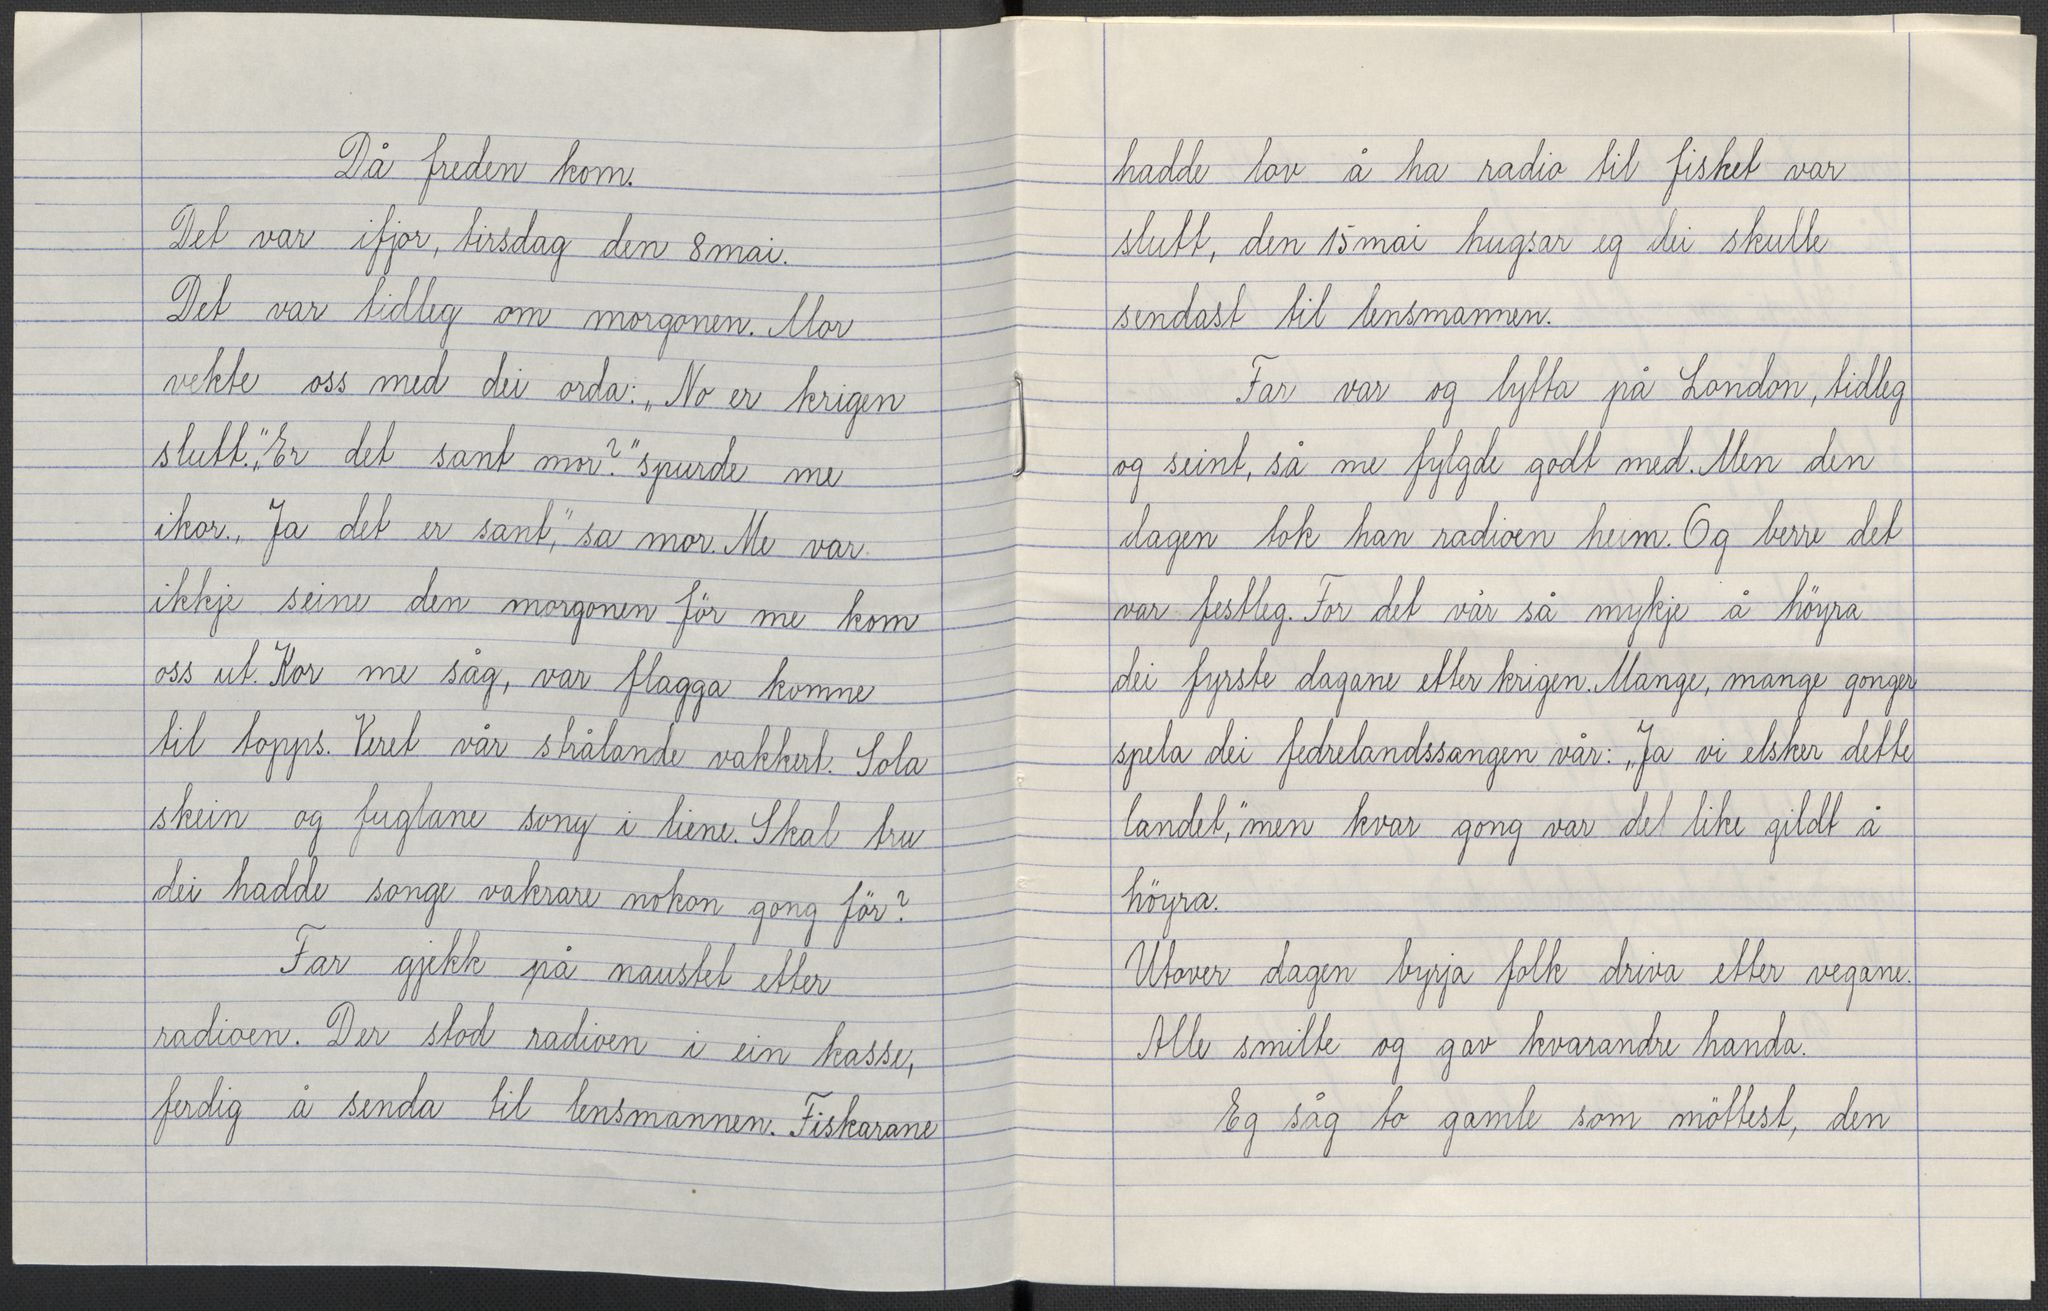 Då freden kom.
Det var ifjor, tirsdag den 8 mai.
Det var tidleg om morgonen. Mor
vekte oss med dei orda: „No er krigen
slutt." „Er det sant mor?" spurde me
ikor. „Ja det er sant," sa mor. Me var
ikkje seine den morgonen för me kom
oss ut. Kor me såg, var flagga komne
til topps. Veret vår strålande vakkert. Sola
skein og fuglane song i liene. Skal tru
dei hadde songe vakrare nokon gong för?
Far gjekk på naustet etter
radioen. Der stod radioen i ein kasse,
ferdig å senda til lensmannen. Fiskarane
hadde lov å ha radio til fisket var
slutt, den 15 mai hugsar eg dei skulle
sendast til lensmannen.
Far var og lytta på London, tidleg
og seint, så me fylgde godt med. Men den
dagen tok han radioen heim. Og berre det
var festleg. For det vår så mykje å höyra
dei fyrste dagane etter krigen. Mange, mange gonger
spela dei fedrelandssangen vår: „Ja vi elsker dette
landet," men kvar gong var det like gildt å
höyra.
Utover dagen byrja folk driva etter vegane.
Alle smilte og gav kvarandre handa.
Eg såg to gamle som möttest, den